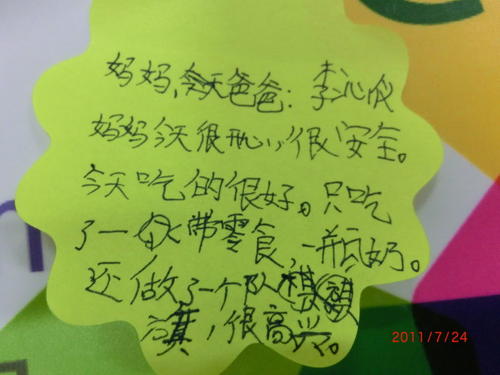 妈妈,今天爸爸:李沁仪
妈妈今天很开心,很安全。
今天吃的很好。只吃
了一次带零食,一瓶奶。
还做了一个队棋
旗,很高兴。
2011/7/24